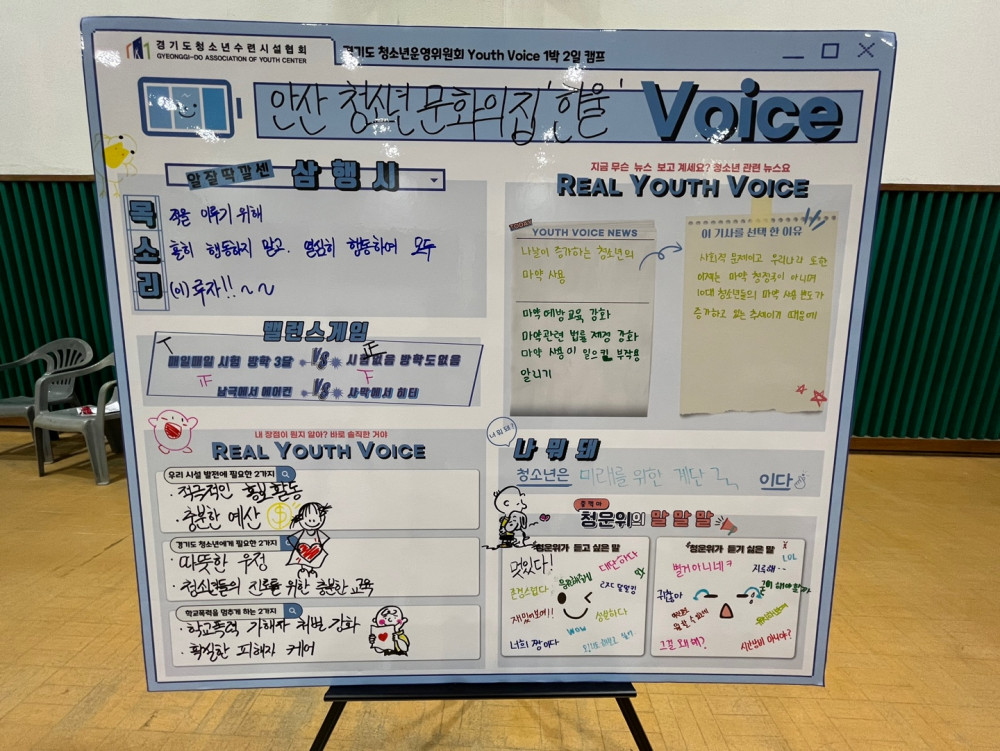 경기도청소년수련시설협회
GYEONGGI-DO ASSOCIATION OF YOUTH CENTER
경기도 청소년운영위원회 Youth Voice 1박 2일 캠프
안산 청소년문화의집 '한울' Voice
알잘딱깔센 삼행시
목 적을 이루기 위해
소 홀히 행동하지 말고. 열심히 행동하여 모두
리 (이)루자!! ~ ~
밸런스게임
매일매일 시험 방학 3달 VS 시험없음 방학도없음
남극에서 에어컨 VS 사막에서 히터
지금 무슨 뉴스 보고 계세요? 청소년 관련 뉴스요
REAL YOUTH VOICE
TODAY
YOUTH VOICE NEWS
나날이 증가하는 청소년의
마약 사용
마약예방교육 강화
마약관련 법률 제정 강화
마약 사용이 일으킬 부작용
알리기
이 기사를 선택 한 이유
사회적 문제이고 우리나라 또한
이제는 마약 청정국이 아니며
10대 청소년들의 마약 사용 빈도가
증가하고 있는 추세이기 때문에
내 장점이 뭔지 알아? 바로 솔직한 거야
REAL YOUTH VOICE
우리 시설 발전에 필요한 2가지
· 적극적인 홍보 활동
· 충분한 예산
경기도 청소년에게 필요한 2가지
· 따뜻한 우정
· 청소년들의 진로를 위한 충분한 교육
학교폭력을 멈추게 하는 2가지
· 학교폭력 가해자 처벌 강화
· 확실한 피해자 케어
나 뭐 돼?
나 뭐 돼
청소년은 미래를 위한 계단 이다
중꺾마
청운위의 말말말
청운위가 듣고 싶은 말
멋있다!
대단하다
존경스럽다
재밌어보여!!
성실하다
WOW
너희 짱이다
청운위가 듣기 싫은 말
별거아니네ㅋ
LOL
지루해..
귀찮아
굳이 해야할까
그걸 왜 해?
시간낭비 아니야?